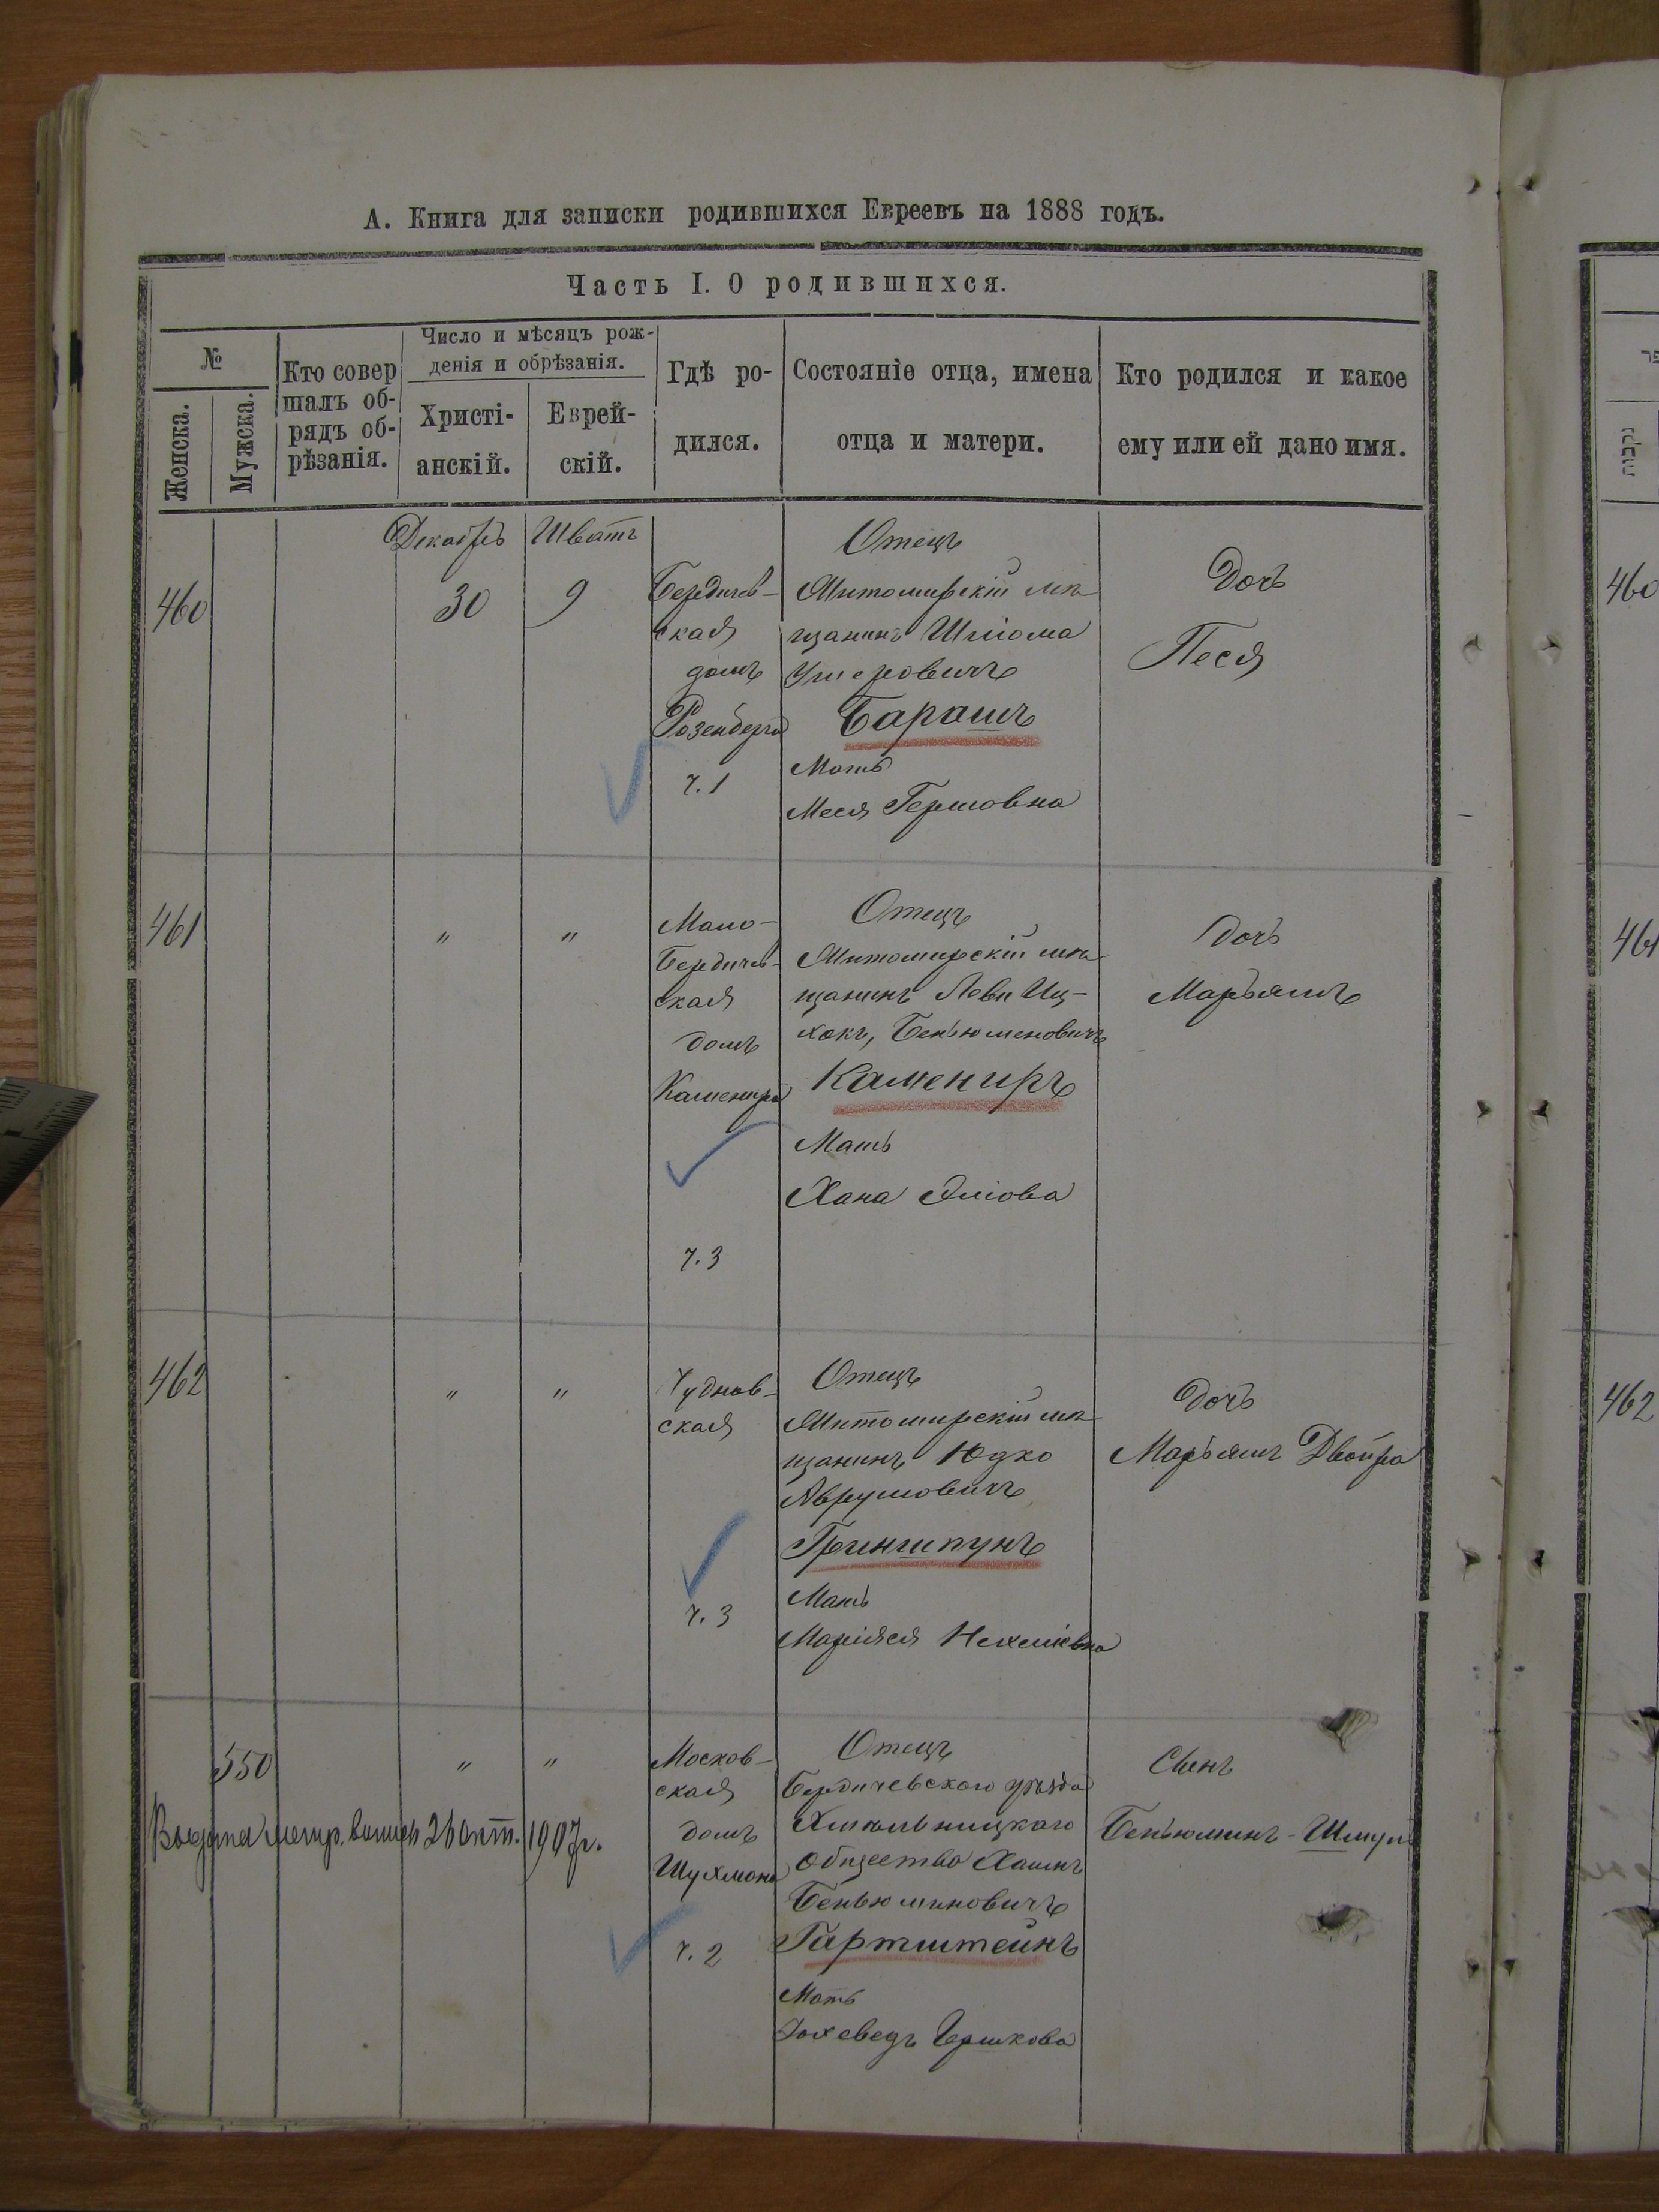 А. Книга для записки родившихся Евреевъ на 1888 годъ.
Часть I. О родившихся.
№
Женска.
Мужска.
Кто совер
шалъ об-
рядъ об-
рѣзанія.
Число и мѣсяцъ рож-
денія и обрѣзанія.
Христі-
анскій.
Еврей-
скій.
Гдѣ ро-
дился.
Состояніе отца, имена
отца и матери.
Кто родился и какое
ему или ей дано имя.
460
Декабрь
30
Шватъ
9
Бердичев-
ская
домъ
Розенберга
ч. 1
Отецъ
Житомирскій мѣ-
щанинъ Шлиома
Ушеровичъ
Барашъ
Мать
Меся Гершовна
Дочь
Песя
461
"
"
Мало-
Бердичев-
ская
домъ
Каменира
ч. 3
Отецъ
Житомирскій мѣ-
щанинъ Леви Иц-
хокъ, Беньюменовичъ
Камениръ
Мать
Хана
Дочь
Марьямъ
462
"
"
Чуднов-
ская
ч. 3
Отецъ
Житомирскій мѣ-
щанинъ Юдко
Аврумовичъ
Гриншпунъ
Мать
Дочь
Марьямъ Двойра
550
"
"
Москов-
ская
домъ
Шухмана
ч. 2
Отецъ
Бердичевского уѣзда
Хмѣльницкаго
Общества Хаимъ
Беньюминовичъ
Гартштейнъ
Мать
Іохеведъ Гершкова
Сынъ
Беньюминъ-Шмуль
Выдана метр. выпись 2 Окт. 1907 г.
460
461
462